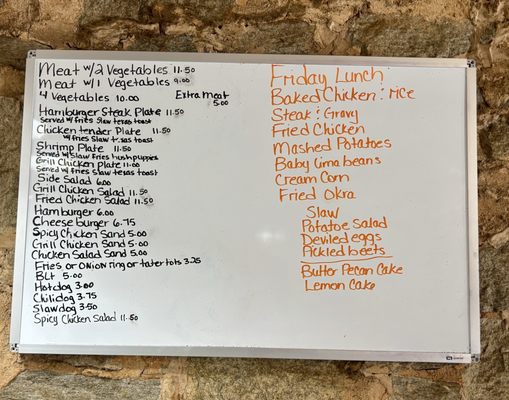 Meat w/2 Vegetables 11.50
Meat w/1 Vegetables 9.00
4 Vegetables 10.00 Extra meat 5.00
Hamburger Steak Plate 11.50
Served w/fries Slaw texas toast
Chicken tender Plate 11.50
w/fries Slaw texas toast
Shrimp Plate 11.50
Served w/Slaw fries hushpuppies
Grill Chicken Plate 11.00
Served w/fries Slaw texas toast
Side Salad 6.00
Grill Chicken Salad 11.50
Fried Chicken Salad 11.50
Hamburger 6.00
Cheese burger 6.75
Spicy Chicken Sand 5.00
Grill Chicken Sand 5.00
Chicken Salad Sand 5.00
Fries or Onion ring or tater tots 3.25
BLT 5.00
Hotdog 3.00
Chilidog 3.75
Slawdog 3.50
Spicy Chicken Salad 11.50
Friday Lunch
Baked Chicken & rice
Steak & Gravy
Fried Chicken
Mashed Potatoes
Baby lima beans
Cream Corn
Fried Okra
Slaw
Potatoe Salad
Deviled eggs
Pickled beets
Butter Pecan Cake
Lemon Cake